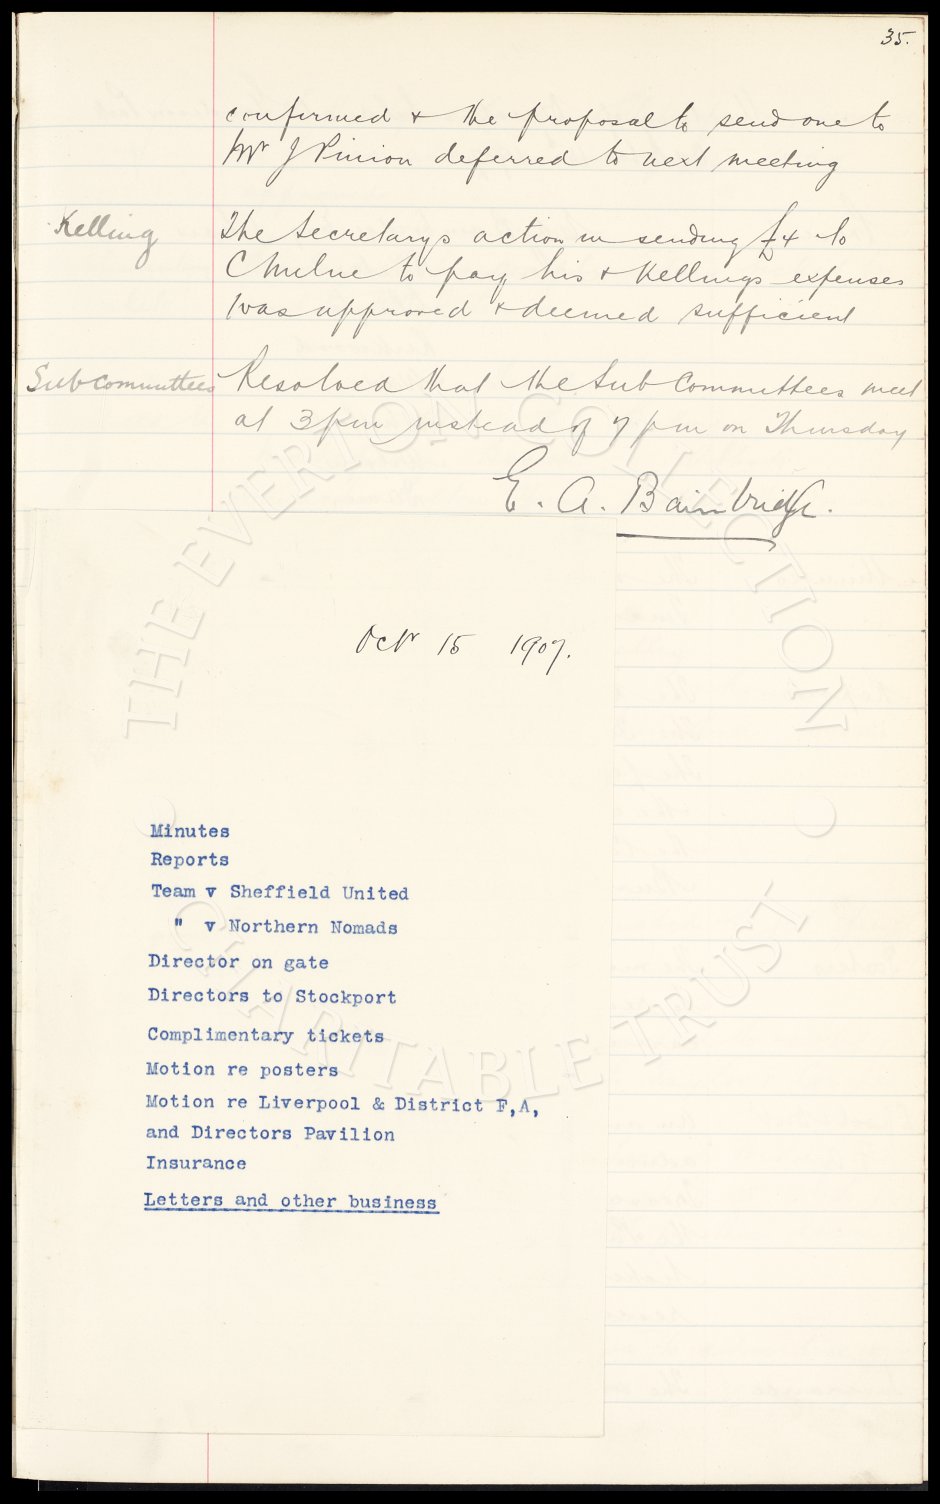 35.
confirmed & the proposal to send one to
Mr J Pinion deferred to next meeting
Kelling
The Secretarys action in sending £4 to
C Milne to pay his & Kellings expenses
was approved & deemed sufficient
Sub Committees
Resolved that the Sub Committees meet
at 3 pm instead of 7 pm on Thursday
E. A. Bainbridge.
Octr 15 1907.
Minutes
Reports
Team v Sheffield United
" v Northern Nomads
Director on gate
Directors to Stockport
Complimentary tickets
Motion re posters
Motion re Liverpool & District F,A,
and Directors Pavilion
Insurance
Letters and other business
THE EVERTON COLLECTION
CHARITABLE TRUST